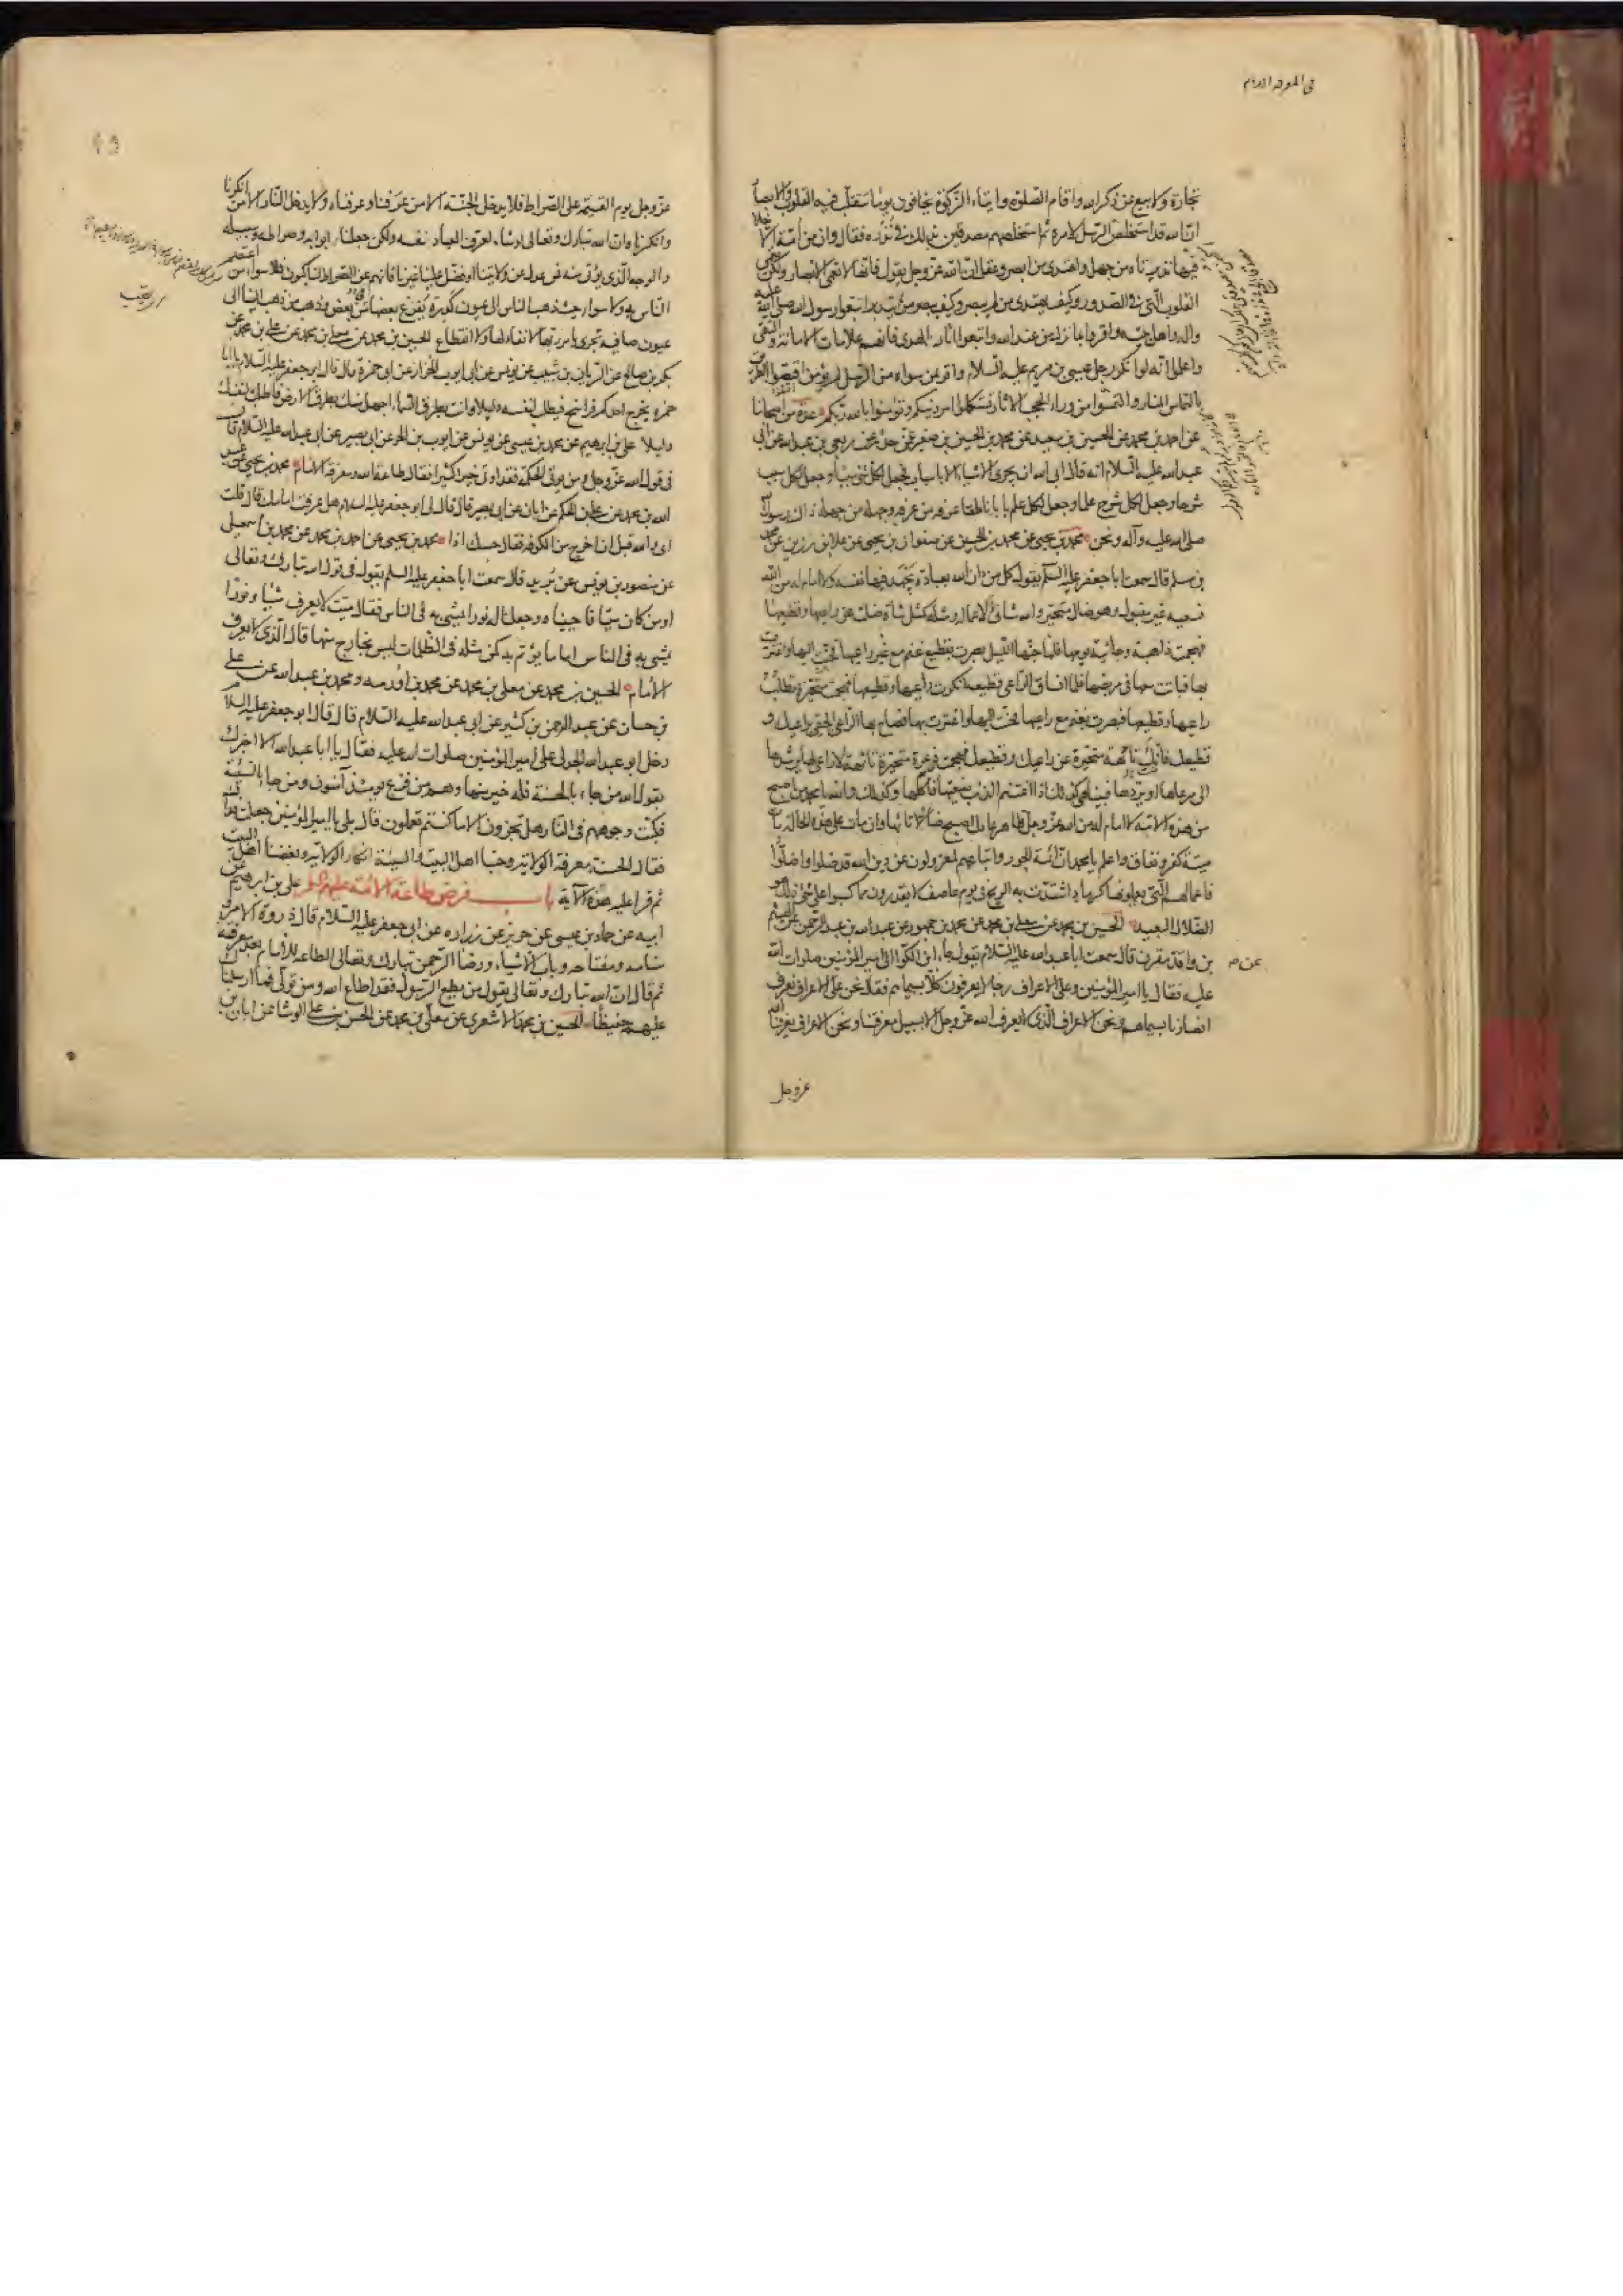 تجارة ولا بيع عن ذكر الله واقام الصلوة وايتاء الزكوة يخافون يوما تتقلب فيه القلوب والابصار
ان الله قد استخلص الرسل لامره ثم استخلصهم مصدقين بذلك في نذره فقال وان من امة الا خلا
فيها نذير تاه من جهل واهتدى من ابصر وعقل ان الله عز وجل يقول فانها لا تعمى الابصار ولكن تعمى
القلوب التي في الصدور وكيف يهتدى من لم يبصر وكيف يبصر من لم يتدبر اتبعوا رسول الله صلى الله عليه
واله واهل بيته واقروا بما نزل من عند الله واتبعوا اثار الهدى فانهم علامات الامانة والتقى
واعلموا انه لو انكر رجل عيسى بن مريم عليه السلام واقر بمن سواه من الرسل لم يؤمن اقتصوا الطريق
بالتماس المنار والتمسوا من وراء الحجب الاثار تستكملوا امر دينكم وتؤمنوا بالله ربكم عدة من اصحابنا
عن احمد بن محمد عن الحسين بن سعيد عن محمد بن الحسين بن صغير عمن حدثه عن ربعي بن عبد الله عن ابي
عبد الله عليه السلام انه قال ابى الله ان يجرى الاشياء الا باسباب فجعل لكل شئ سببا وجعل لكل سبب
شرحا وجعل لكل شرح علما وجعل لكل علم بابا ناطقا عرفه من عرفه وجهله من جهله ذاك رسول الله
صلى الله عليه وآله ونحن محمد بن يحيى عن محمد بن الحسين عن صفوان بن يحيى عن علا بن رزين عن محمد
بن مسلم قال سمعت ابا جعفر عليه السلم يقول كل من دان الله بعبادة يجهد فيها نفسه ولا امام له من الله
فسعيه غير مقبول وهو ضال متحير والله شانئ لاعماله ومثله كمثل شاة ضلت عن راعيها وقطيعها
فهجمت ذاهبة وجائية يومها فلما جنها الليل بصرت بقطيع غنم مع غير راعيها فحنت اليها واغترت
بها فباتت معها في مربضها فلما ان ساق الراعى قطيعه انكرت راعيها وقطيعها فهجمت متحيرة تطلب
راعيها وقطيعها فبصرت بغنم مع راعيها فحنت اليها واغترت بها فصاح بها الراعى الحقى براعيك و
قطيعك فانك تائهة متحيرة عن راعيك وقطيعك فهجمت ذعرة متحيرة تائهة لا راعى لها يرشدها
الى مرعاها او يردها فبينا هي كذلك اذا اغتنم الذئب ضيعتها فاكلها وكذلك والله يا محمد من اصبح
من هذه الامة لا امام له من الله عز وجل ظاهر عادل اصبح ضالا تائها وان مات على هذه الحالة مات
ميتة كفر ونفاق واعلم يا محمد ان ائمة الجور واتباعهم لمعزولون عن دين الله قد ضلوا واضلوا
فاعمالهم التي يعملونها كرماد اشتدت به الريح في يوم عاصف لا يقدرون مما كسبوا على شئ ذلك هو
الضلال البعيد الحسين بن محمد عن معلى بن محمد عن محمد بن جمهور عن عبد الله بن عبد الرحمن عن الهيثم
بن واقد مقرن قال سمعت ابا عبد الله عليه السلام يقول جاء ابن الكوا الى امير المؤمنين صلوات الله
عن
عليه فقال يا امير المؤمنين وعلى الاعراف رجال يعرفون كلا بسيماهم فقال نحن على الاعراف نعرف
انصارنا بسيماهم ونحن الاعراف الذى لا يعرف الله عز وجل الا بسبيل معرفتنا ونحن الاعراف يعرفنا الله
عز وجل
عز وجل يوم القيمة على الصراط فلا يدخل الجنة الا من عرفنا وعرفناه ولا يدخل النار الا من انكرنا
وانكرناه ان الله تبارك وتعالى لو شاء لعرف العباد نفسه ولكن جعلنا ابوابه وصراطه وسبيله
والوجه الذى يؤتى منه فمن عدل عن ولايتنا او فضل علينا غيرنا فانهم عن الصراط لناكبون فلا سواء من اعتصم
الناس به ولا سواء حيث ذهب الناس الى عيون كدرة يفرغ بعضها من بعض وذهب من ذهب الينا الى
عيون صافية تجرى بامر ربها لا نفاد لها ولا انقطاع الحسين بن محمد عن معلى بن محمد عن على بن محمد عن
بكر بن صالح عن الريان بن شبيب عن يونس عن ابى ايوب الخزاز عن ابى حمزة قال قال ابو جعفر عليه السلام يا ابا
حمزه يخرج احدكم فراسخ فيطلب لنفسه دليلا وانت بطرق السماء اجهل منك بطرق الارض فاطلب لنفسك
دليلا على بن ابرهيم عن محمد بن عيسى عن يونس عن ايوب بن الحر عن ابى بصير عن ابى عبد الله عليه السلام
فى قول الله عز وجل ومن يؤتى الحكمة فقد اوتى خيرا كثيرا فقال طاعة الله ومعرفة الامام محمد بن يحيى عن عبد
الله بن محمد عن على بن الحكم عن ابان عن ابى بصير قال قال لى ابو جعفر عليه السلام هل عرفت امامك قال قلت
اى والله قبل ان اخرج من الكوفة فقال حسبك اذا محمد بن يحيى عن احمد بن محمد عن محمد بن اسمعيل
عن منصور بن يونس عن بريد قال سمعت ابا جعفر عليه السلم يقول فى قول الله تبارك وتعالى
اومن كان ميتا فاحييناه وجعلنا له نورا يمشى به فى الناس فقال ميت لا يعرف شيئا ونورا
يمشى به فى الناس اماما يؤتم به كمن مثله فى الظلمات ليس بخارج منها قال الذى لا يعرف
الامام الحسين بن محمد عن معلى بن محمد عن محمد بن اورمه ومحمد بن عبد الله عن على
بن حسان عن عبد الرحمن بن كثير عن ابى عبد الله عليه السلام قال قال ابو جعفر عليه السلام
دخل ابو عبد الله الجدلى على امير المؤمنين صلوات الله عليه فقال يا ابا عبد الله الا اخبرك
بقول الله من جاء بالحسنة فله خير منها وهم من فزع يومئذ آمنون ومن جاء بالسيئة
فكبت وجوههم فى النار هل تجزون الا ما كنتم تعملون قال بلى يا امير المؤمنين جعلت فداك
فقال الحسنة معرفة الولاية وحبنا اهل البيت والسيئة انكار الولاية وبغضنا اهل البيت
ثم قرا عليه هذه الآية باب فرض طاعة الائمة عليهم السلم على بن ابرهيم عن
ابيه عن حماد بن عيسى عن حريز عن زراره عن ابى جعفر عليه السلام قال ذروة الامر و
سنامه ومفتاحه وباب الاشياء ورضا الرحمن تبارك وتعالى الطاعة للامام بعد معرفته
ثم قال ان الله تبارك وتعالى يقول من يطع الرسول فقد اطاع الله ومن تولى فما ارسلناك
عليهم حفيظا الحسين بن محمد الاشعرى عن معلى بن محمد عن الحسن بن على الوشا عن ابان بن